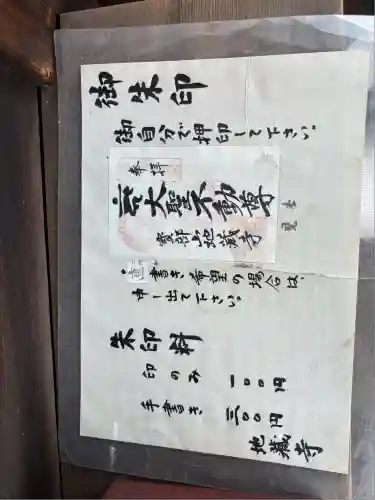 御朱印
御自分で押印して下さい。
奉拝
大聖不動尊
見本
寳部山地蔵寺
直書き希望の場合は、
申し出て下さい。
朱印料
印のみ 一〇〇円
手書き 三〇〇円
地蔵寺